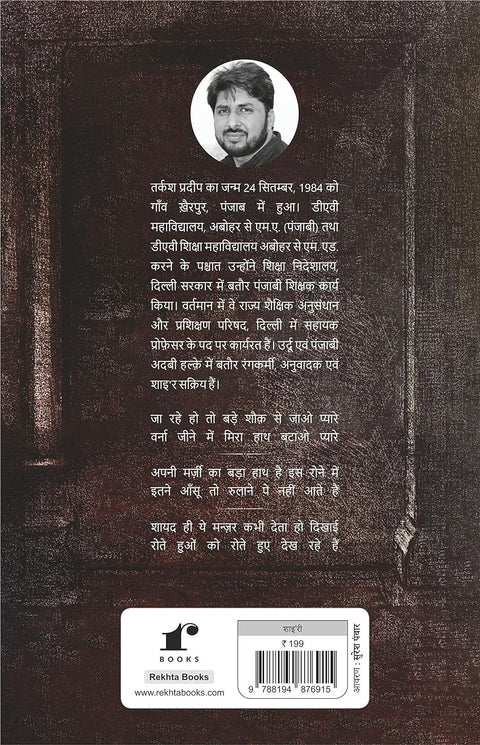 तर्कश प्रदीप का जन्म 24 सितम्बर, 1984 को
गाँव ख़ैरपुर, पंजाब में हुआ। डीएवी
महाविद्यालय, अबोहर से एम.ए. (पंजाबी) तथा
डीएवी शिक्षा महाविद्यालय अबोहर से एम. एड.
करने के पश्चात उन्होंने शिक्षा निदेशालय,
दिल्ली सरकार में बतौर पंजाबी शिक्षक कार्य
किया। वर्तमान में वे राज्य शैक्षिक अनुसंधान
और प्रशिक्षण परिषद, दिल्ली में सहायक
प्रोफ़ेसर के पद पर कार्यरत हैं। उर्दू एवं पंजाबी
अदबी हल्क़े में बतौर रंगकर्मी, अनुवादक एवं
शाइ'र सक्रिय हैं।
जा रहे हो तो बड़े शौक़ से जाओ प्यारे
वर्ना जीने में मिरा हाथ बटाओ प्यारे
अपनी मर्ज़ी का बड़ा हाथ है इस रोने में
इतने आँसू तो रुलाने पे नहीं आते हैं
शायद ही ये मन्ज़र कभी देता हो दिखाई
रोते हुओं को रोते हुए देख रहे हैं
r
BOOKS
Rekhta Books
www.rekhtabooks.com
शाइ'री
₹ 199
9 788194 876915
आवरण : सुरेश पंवार